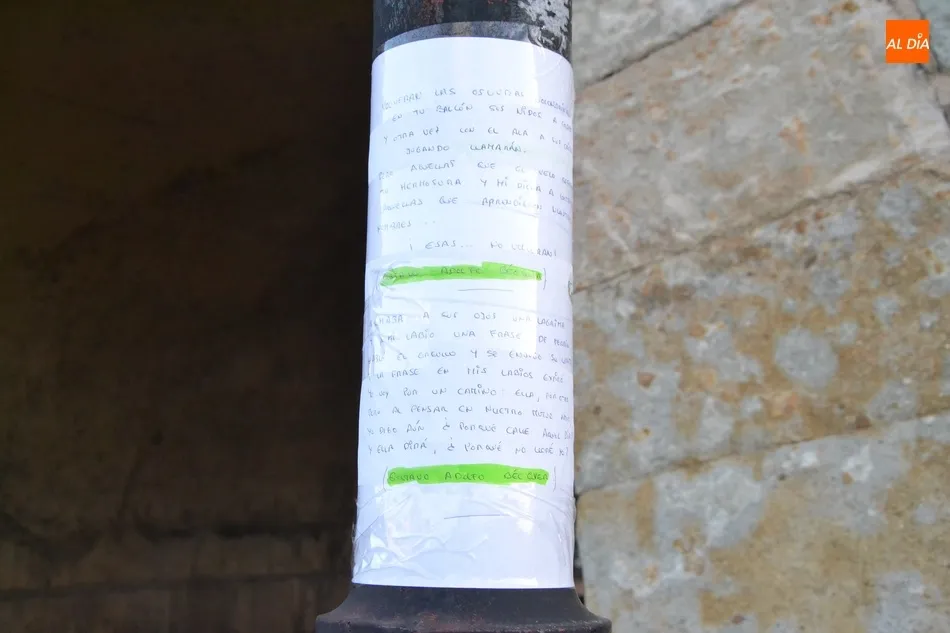 AL DÍA
LAS OSCURAS
EN TU BALCÓN SUS NIDOS A
Y OTRA VEZ CON EL ALA A SUS
JUGANDO LLAMARÁN.
AQUELLAS QUE EL VUELO
HERMOSURA Y MI DICHA A
AQUELLAS QUE APRENDIERON
NOMBRES...
¡ ESAS... NO VOLVERÁN!
ADOLFO BÉCQUER)
A SUS OJOS UNA LÁGRIMA
LABIO UNA FRASE DE PERDÓN
EL ORGULLO Y SE ENJUGÓ SU
LA FRASE EN MIS LABIOS EXPIRÓ
YO VOY POR UN CAMINO: ELLA, POR OTRO
PERO AL PENSAR EN NUESTRO MUTUO
YO DIGO AÚN ¿ PORQUÉ CALLÉ AQUEL
Y ELLA DIRÁ, ¿ PORQUÉ NO LLORÉ YO?
(GUSTAVO ADOLFO BÉCQUER)